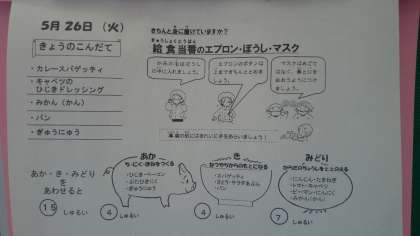 5月26日（火）
きょうのこんだて
・カレースパゲッティ
・キャベツの
ひじきドレッシング
・みかん（かん）
・パン
・ぎゅうにゅう
きちんと身に着けていますか？
きゅうしょくとうばん
給食当番のエプロン・ぼうし・マスク
かみの毛はぼうし
の中に入れましょう。
エプロンのボタンは
上まできちんととめま
しょう。
マスクはあごで
はなく、鼻と口を
おおうようにつけ
ましょう。
あか・き・みどり
を
あわせると
15 しゅるい
あか
ち・にく・ほねをつくる
・ひじき・ベーコン
・ぶたひきにく
・ぎゅうにゅう
4 しゅるい
き
ねつやちからのもとになる
・スパゲッティ
・さとう・サラダあぶら
・パン
4 しゅるい
みどり
からだのちょうしをととのえる
・にんにく・たまねぎ
・トマト・キャベツ
・ピーマン・にんじん
・みかん(かん)
7 しゅるい